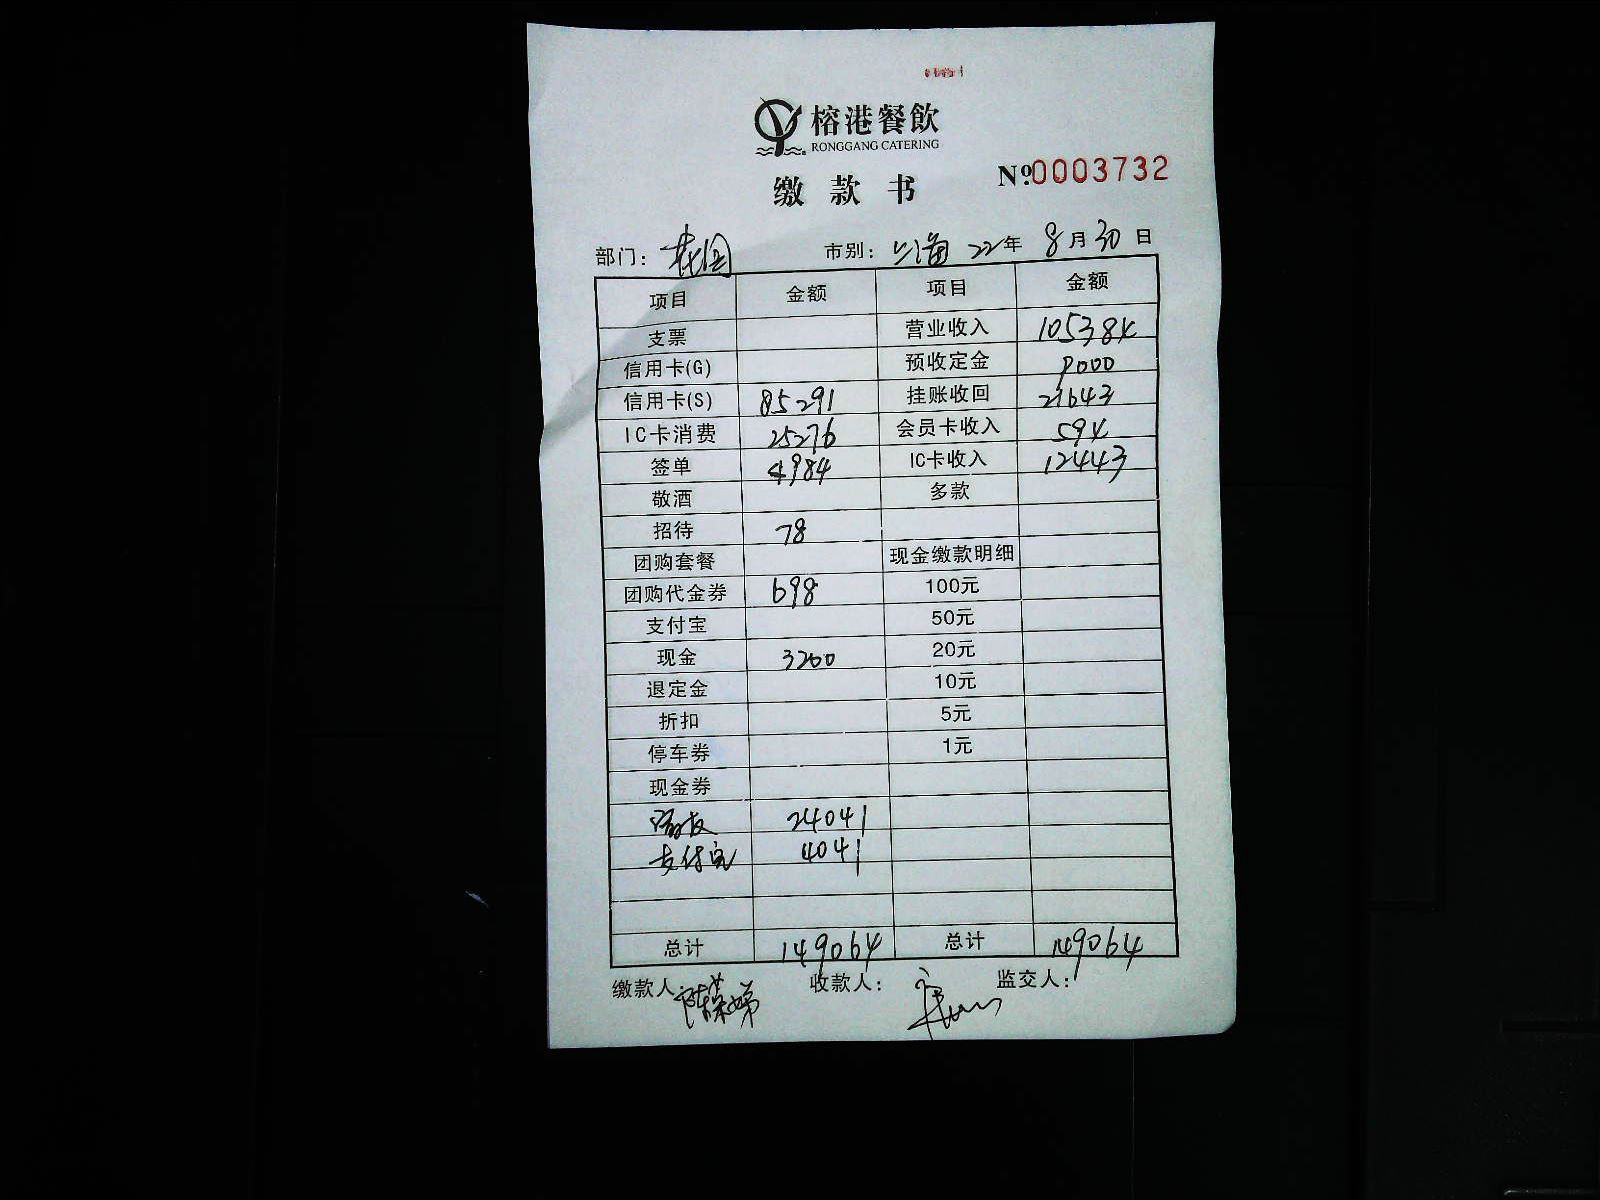 榕港餐飲
RONGGANG CATERING
缴款书 №0003732
部门: 市别: 上海 22年 8月30日
项目 金额 项目 金额
支票 营业收入 105384
信用卡(G) 预收定金 9000
信用卡(S) 85291 挂账收回 21643
IC卡消费 25276 会员卡收入 594
签单 4984 IC卡收入 12443
敬酒 多款
招待 78
团购套餐 现金缴款明细
团购代金券 698 100元
支付宝 50元
现金 3200 20元
退定金 10元
折扣 5元
停车券 1元
现金券
24041
支付宝 4041
总计 149064 总计 149064
缴款人: 收款人: 监交人: